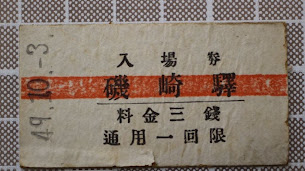 49.10.-3.
入場券
磯崎驛
料金三錢
通用一回限